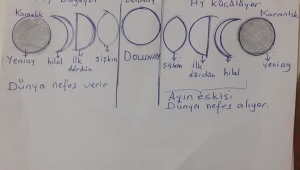 Ay büyüyor
Dolunay
Ay küçülüyor
Karanlık
Karanlık
Yeniay
hilal
ilk
dördün
şişkin
DOLUNAY
şişkin
ilk
dördün
hilal
yeniay
Dünya nefes verir
Ayın eskisi
Dünya nefes alıyor.